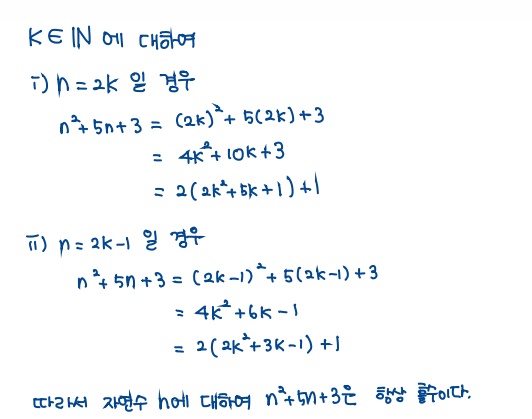 K∈ℕ 에 대하여
i) n = 2k 일 경우
n²+5n+3 = (2k)²+5(2k)+3
= 4k²+10k+3
= 2(2k²+5k+1)+1
ii) n = 2k-1 일 경우
n²+5n+3 = (2k-1)²+5(2k-1)+3
= 4k²+6k-1
= 2(2k²+3k-1)+1
따라서 자연수 n에 대하여 n²+5n+3은 항상 홀수이다.